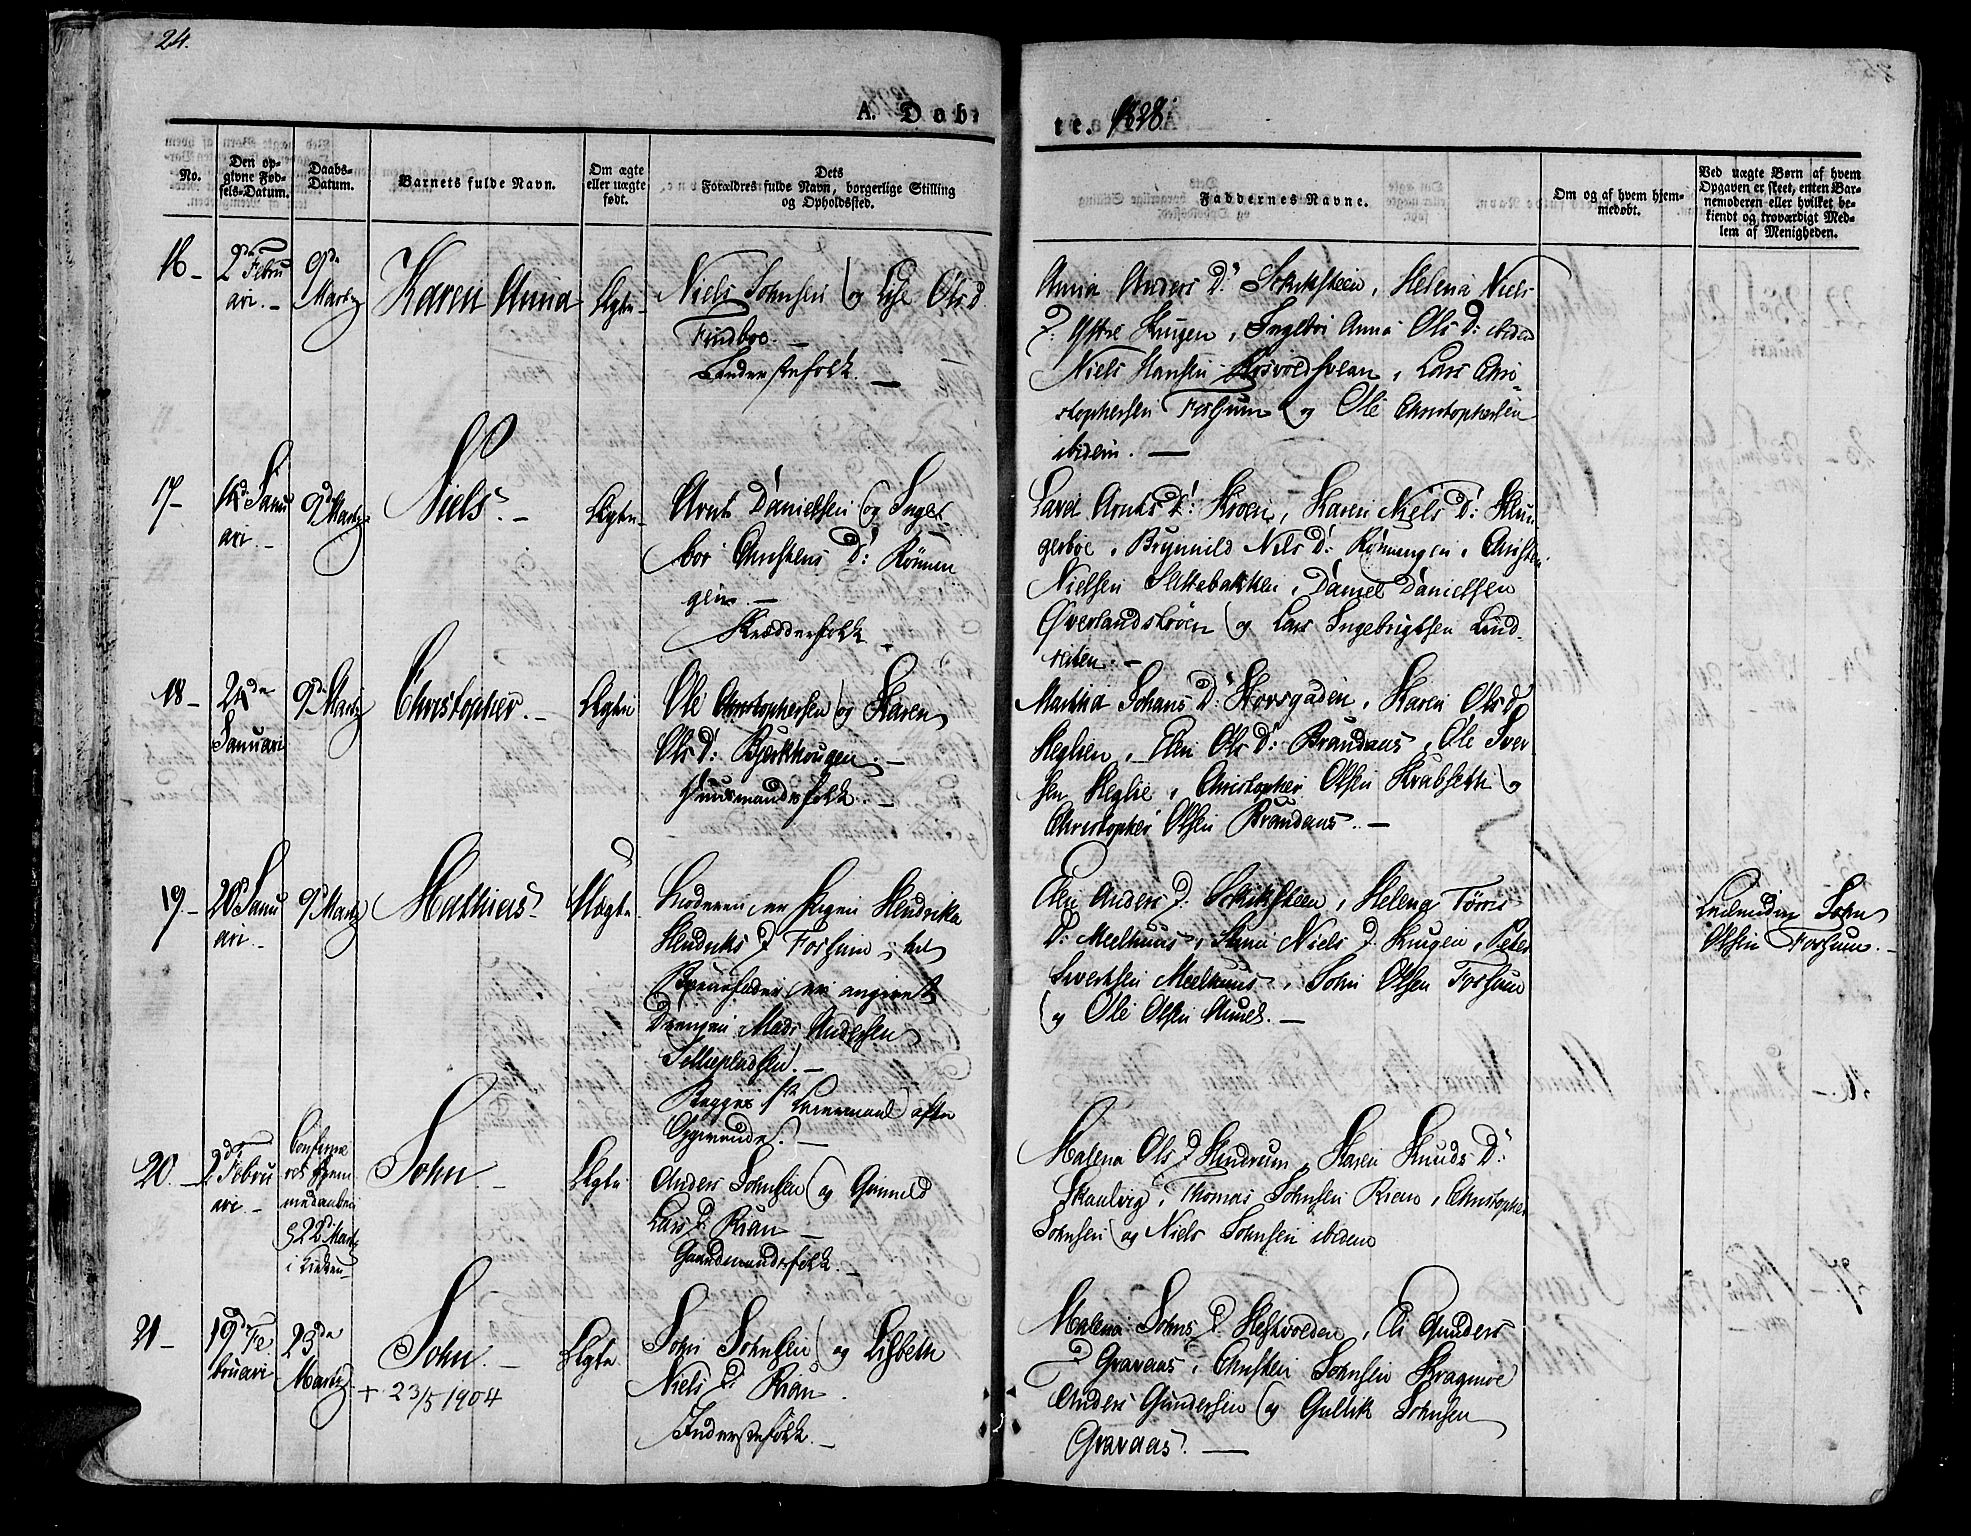 24.
A. Døbte. 1828.
No.
Den opgivne Fødsels-Datum.
Daabs-Datum.
Barnets fulde Navn.
Om ægte eller uægte født.
Dets Forældres fulde Navn, borgerlige Stilling og Opholdsted.
Faddernes Navne.
Om og af hvem hjemmedøbt.
Ved uægte Børn af hvem Opgaven er skeet, enten Barnemoderen eller hvilket bekiendt og troværdigt Medlem af Menigheden.
16-
2de Febru
ari. -
9de
Marty
Karen Anna
Ægte
Niels Johnsen og Lise Ols d.
Findboe. -
Inderstefolk. -
Anna Anders D: Schiksteen, Helena Niels
D. Ystre Haugen, Ingebor Anna Ols D: ibidem
Niels Hansen Rosvoldsvean, Lars Chri-
stophersen Forsum og Ole Christophersen
ibidem. -
17-
Janu
ari. -
9de Marty
Niels. -
Ægte
Arnt Danielsen og Inge-
bor Christens D: Rønnin
gen. -
Skrædderfolk -
Arnts D: Kroen, Karen Niels D: Klun
gerboe, Brynnild Nils D: Rønningen, Christen
Nielsen Slettebakken, Daniel Danielsen
Øverlandskroen og Lars Ingebrigtsen Lund-
-
18-
24de
Januari
9de Marty
Christopher. -
Ægte
Ole Christophersen og Karen
Ols D: Bjerkhougen. -
Huusmandsfolk. -
Martha Johans D: Korsgaden, Karen Ols d
Heglien, Elen Ols D: Brandaas, Ole Iver
sen Heglie, Christopher Olsen Krabseth og
Christopher Olsen Brandaas. -
19-
20de Janu
ari. -
9 Marty
Mathias
Uægte
Moderen er Pigen Hendrika
Hendriks D Forsum, til
Barnefader er angivet
Drengen Mads Andersen
Jelliepladsen. -
Begges 1ste Leiermaal efter
Opgivende. -
Elen Anders D. Schiksteen, Helena Tørris
D: Meelhuus, Niels D. Haugen, Peter
Sivertsen Meelhuus, John Olsen Forsum
og Ole Olsen Aunet. -
John
Olsen Forsum. -
20. -
2de Febru
ari. -
ret hjem
22de Marty
i Kirken
John -
Ægte
Anders Johnsen og Gunild
Lars D. Rian -
Gaardmandsfolk. -
Malena Ols D Hinderum, Karen Knuds D:
Skaalvig, Thomas Johnsen Rian, Christopher
Johnsen og Niels Johnsen ibidem
21-
19de Fe
bruari
23de
Marty
John. -
+ 23/5 1904
Ægte
John Johnsen og Lisbeth
Niels D: Rian.
Inderstefolk. -
Malena Johns D. Hestvolden, Eli Gunders
D Gravaas, Christen Johnsen Kragmoe
Anders Gundersen og Gullik Johnsen
Gravaas. -